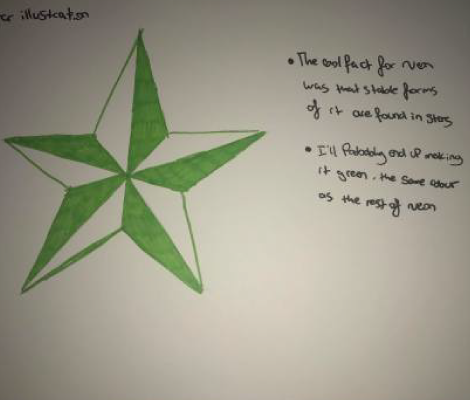 illustration
• The cool fact for neon
was that stable forms
of it are found in stars
• I'll Probably end up making
it green, the same colour
as the rest of neon